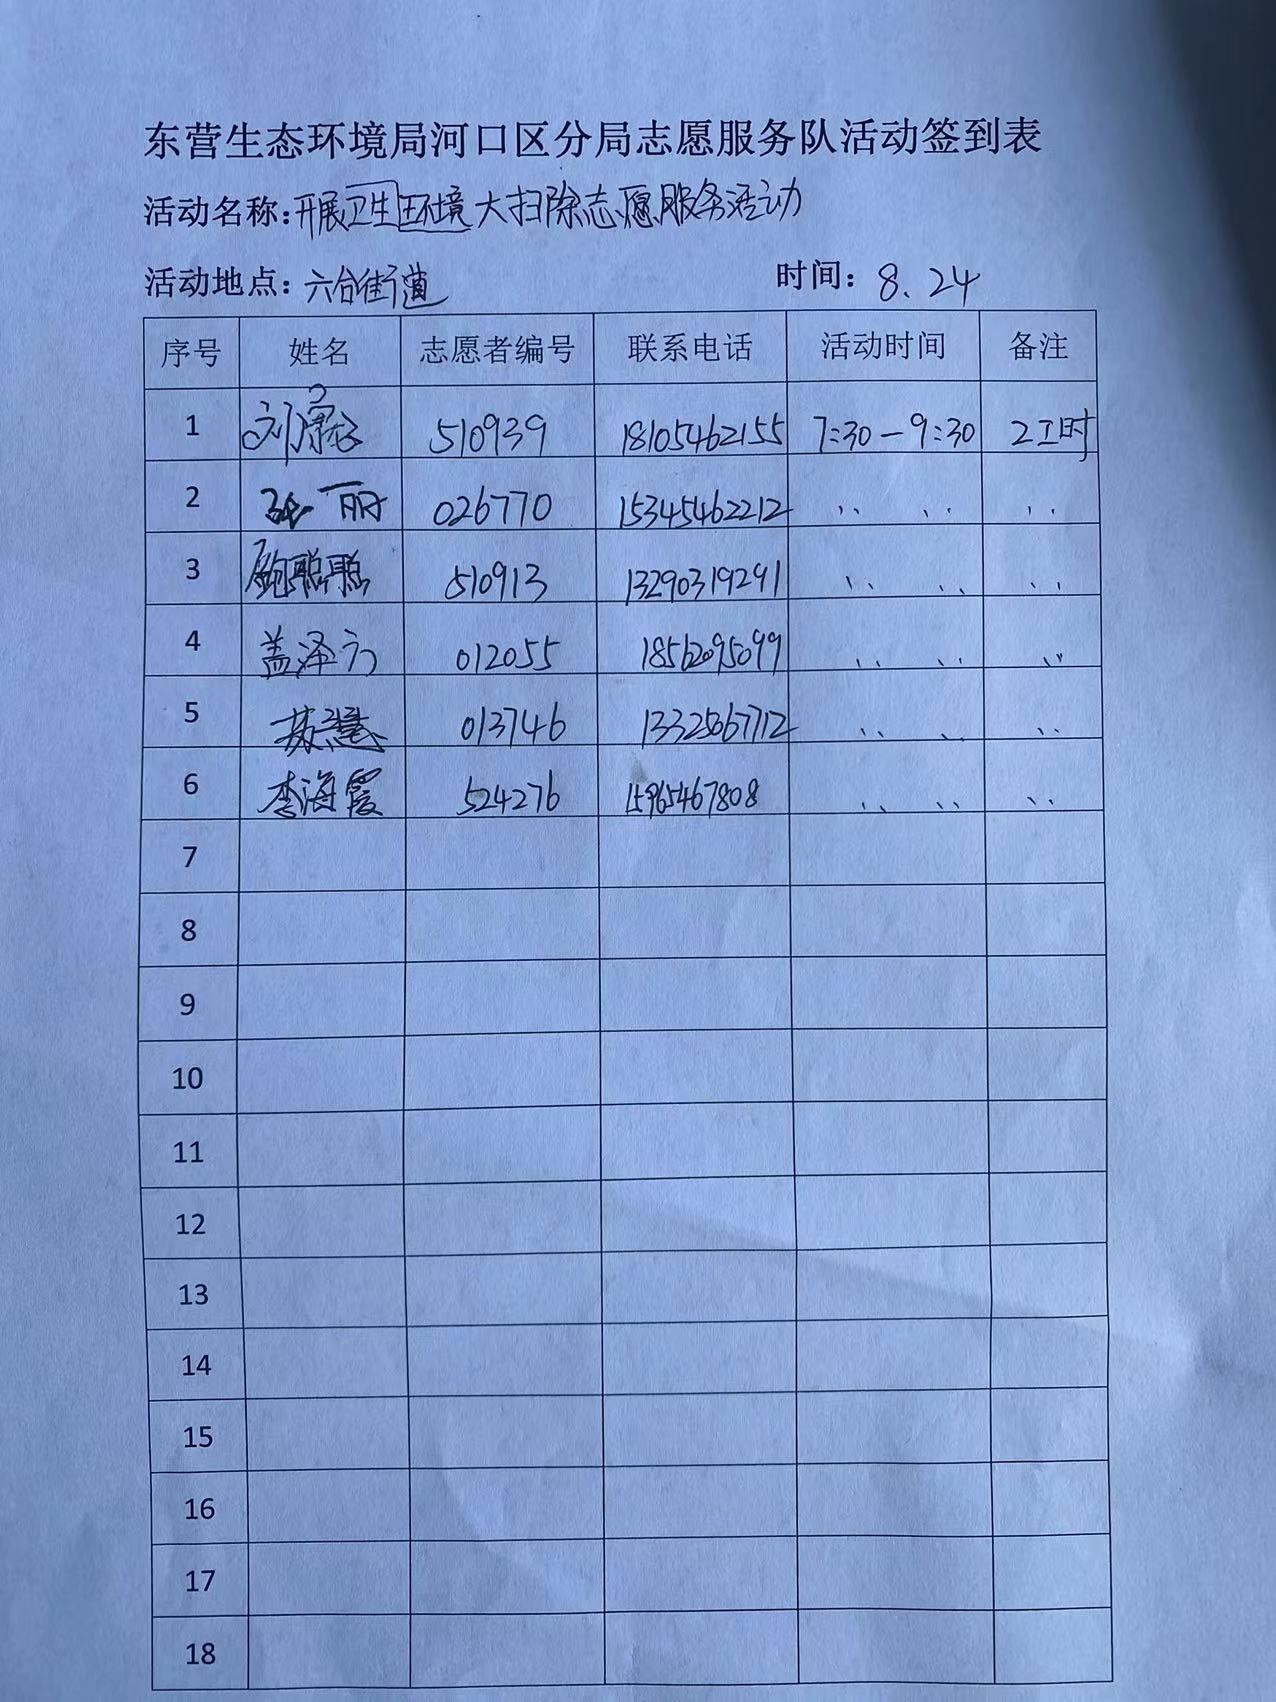 东营生态环境局河口区分局志愿服务队活动签到表
活动名称:开展卫生环境大扫除志愿服务活动
活动地点:六合街道 时间:8.24
序号 姓名 志愿者编号 联系电话 活动时间 备注
1 刘 510939 18105462155 7:30-9:30 2工时
2 张丽 026770 15345462212 〃 〃 〃
3 鲍聪聪 510913 13290319291 〃 〃 〃
4 盖泽方 012055 18562095099 〃 〃 〃
5 013746 〃 〃 〃
6 李海霞 524276 15965467808 〃 〃 〃
7
8
9
10
11
12
13
14
15
16
17
18